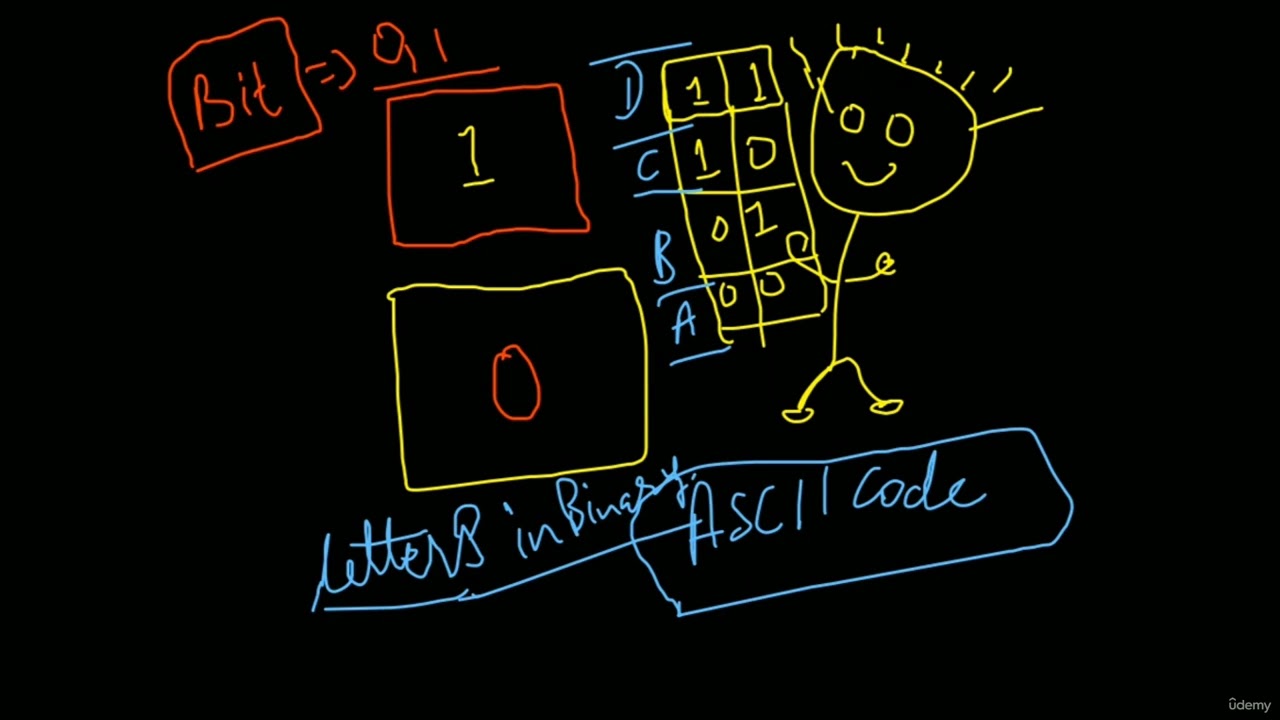 Bit => 0,1
1
D 1 1
C 1 0
B 0 1
A 0 0
0
letters in Binary.
ASCII code
ûdemy